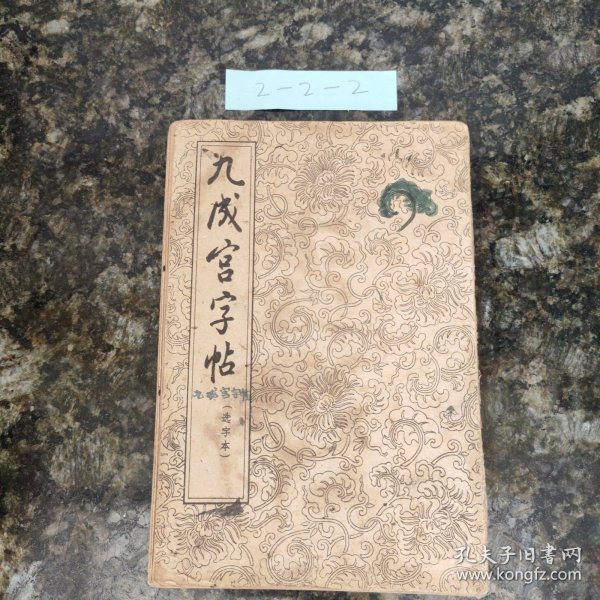 2-2-2
九成宫字帖
九成宫字帖
(选字本)
孔夫子旧书网
www.kongfz.com